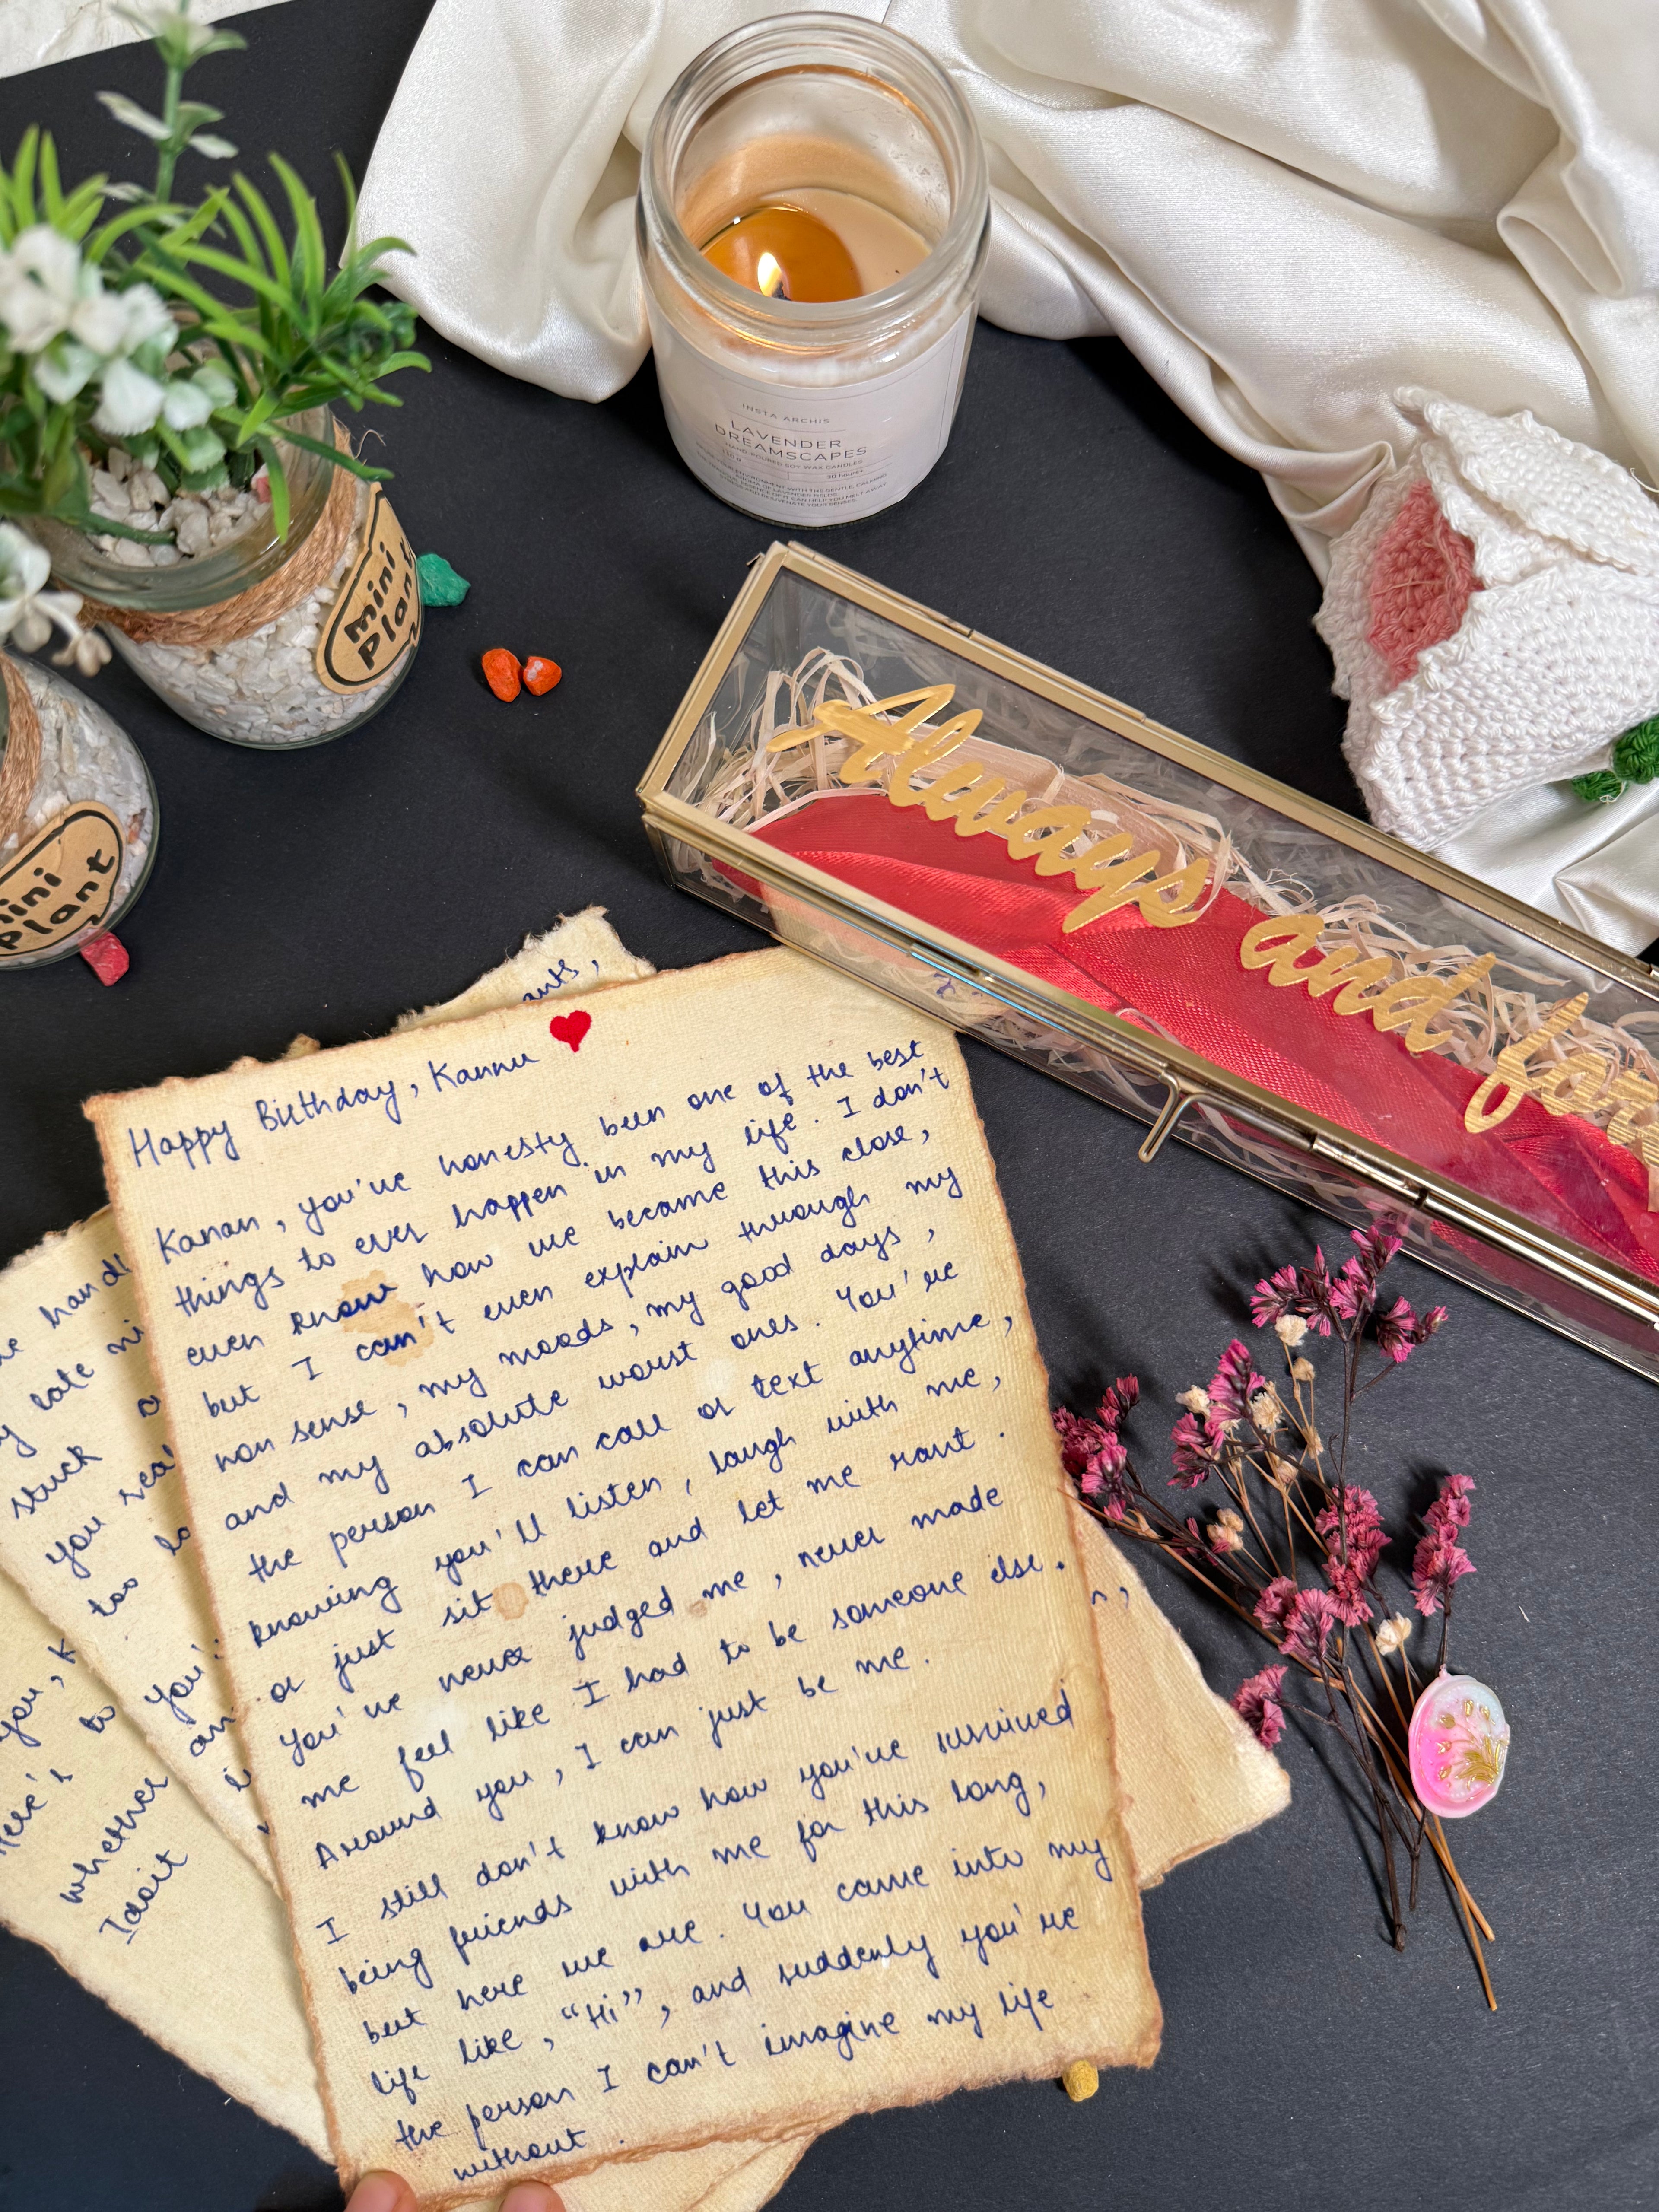 INSTA ARCHIS
LAVENDER
DREAMSCAPES
HAND-POURED SOY WAX CANDLES
30 hours
mini
Plant
mini
Plant
Always and for
ants,
Happy Birthday, Kannu
Kanan, you've honesty been one of the best
things to ever happen in my life. I don't
even know how we became this close,
but I can't even explain through my
non sense, my moods, my good days,
and my absolute worst ones. You're
the person I can call or text anytime,
knowing you'll listen, laugh with me,
or just sit there and let me rant.
You've never judged me, never made
me feel like I had to be someone else.
Around you, I can just be me.
I still don't know how you've survived
being friends with me for this long,
but here we are. You came into my
life like, “Hi”, and suddenly you're
the person I can't imagine my life
without.
handl
late ni
stuck
you real
too lo
you, K
Here's to you
whether
Idoit